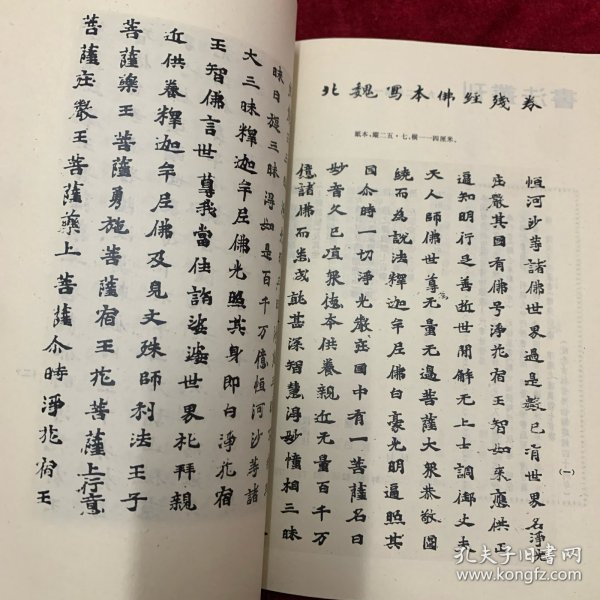 北魏寫本佛经残卷
紙本，縱二五·七，橫一一四厘米。
恒河沙等諸佛世界過是數已有世界名淨光
庄嚴其國有佛号淨花宿王智如來應供正
遍知明行足善逝世間解无上士調御丈夫
天人師佛世尊无量无邊菩薩大眾恭敬圍
繞而為說法釋迦牟尼佛白豪光明遍照其
國尒時一切淨光嚴庄國中有一菩薩名曰
妙音久已殖眾德本供養親近无量百千万
億諸佛而悉成就甚深智慧得妙憧相三昧
（一）
昧日旋三昧得如是百千万億恒河沙等諸
大三昧釋迦牟尼佛光照其身即白淨花宿
王智佛言世尊我當往詣娑婆世界礼拜親
近供養釋迦牟尼佛及見文殊師利法王子
菩薩藥王菩薩勇施菩薩宿王花菩薩上行意
菩薩庄嚴王菩薩藥上菩薩尒時淨花宿王
孔夫子旧书网
www.kongfz.com